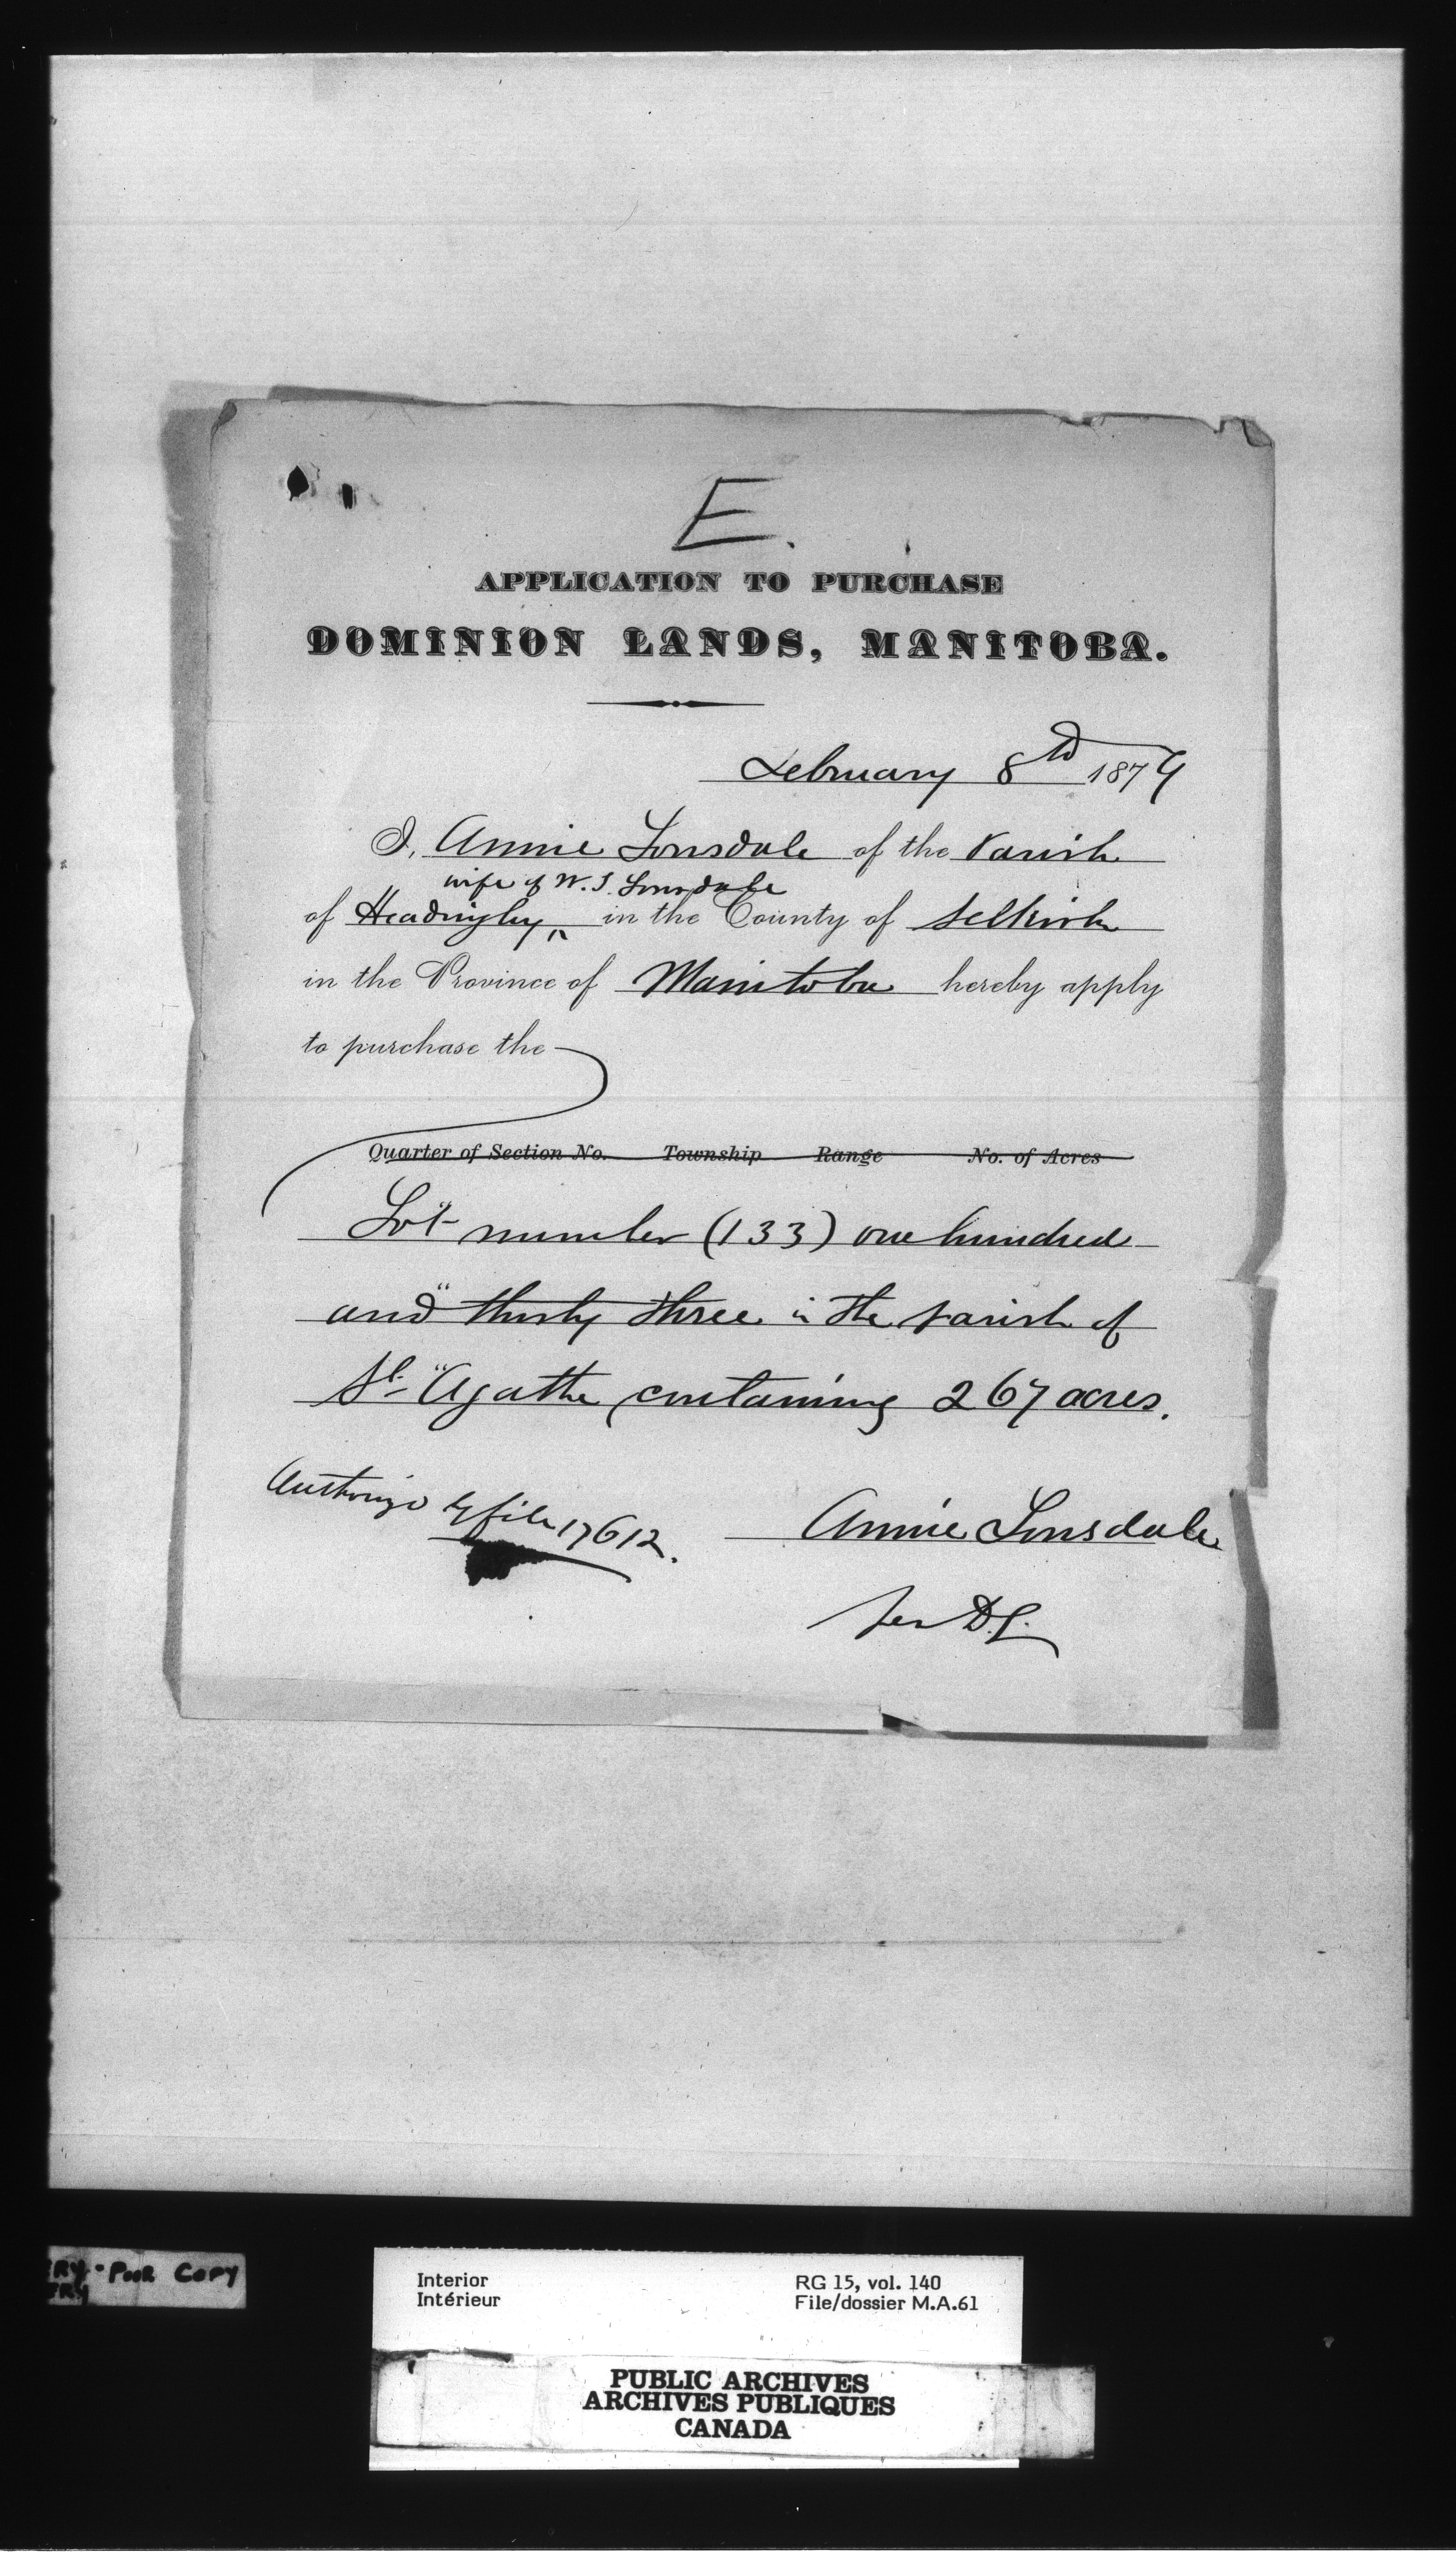 E.
APPLICATION TO PURCHASE
DOMINION LANDS, MANITOBA.
February 8th 1879
I, Annie Lonsdale of the Parish
wife of W. J. Lonsdale
of Headingley in the County of Selkirk
in the Province of Manitoba hereby apply
to purchase the
Quarter of Section No. Township Range No. of Acres
Lot number (133) one hundred
and thirty three in the parish of
St Agathe containing 267 acres.
file 17612.
Annie Lonsdale
per D.L.
RY - POOR COPY
RY
Interior
Intérieur
RG 15, vol. 140
File/dossier M.A.61
PUBLIC ARCHIVES
ARCHIVES PUBLIQUES
CANADA